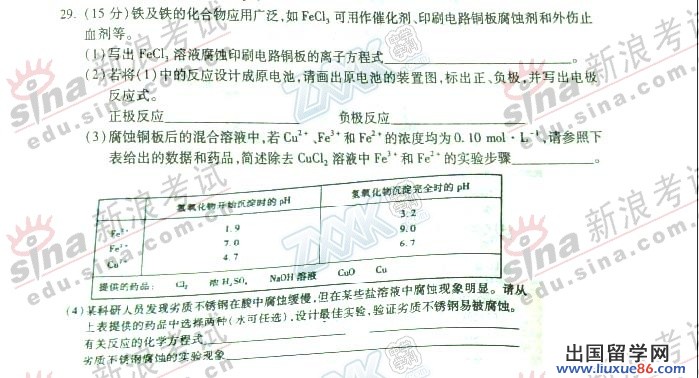 29. (15 分)铁及铁的化合物应用广泛,如 FeCl₃ 可用作催化剂、印刷电路铜板腐蚀剂和外伤止
血剂等。
(1)写出 FeCl₃ 溶液腐蚀印刷电路铜板的离子方程式____________________。
(2)若将(1)中的反应设计成原电池,请画出原电池的装置图,标出正、负极,并写出电极
反应式。
正极反应____________________ 负极反应____________________
(3)腐蚀铜板后的混合溶液中,若 Cu²⁺、Fe³⁺ 和 Fe²⁺ 的浓度均为 0.10 mol·L⁻¹,请参照下
表给出的数据和药品,简述除去 CuCl₂ 溶液中 Fe³⁺ 和 Fe²⁺ 的实验步骤__________。
氢氧化物开始沉淀时的 pH 氢氧化物沉淀完全时的 pH
Fe³⁺ 1.9 3.2
Fe²⁺ 7.0 9.0
Cu²⁺ 4.7 6.7
提供的药品: Cl₂ 浓 H₂SO₄ NaOH 溶液 CuO Cu
(4)某科研人员发现劣质不锈钢在酸中腐蚀缓慢,但在某些盐溶液中腐蚀现象明显。请从
上表提供的药品中选择两种(水可任选),设计最佳实验,验证劣质不锈钢易被腐蚀。
有关反应的化学方程式____________________
劣质不锈钢腐蚀的实验现象____________________
sina 新浪考试
edu.sina.com.cn
ZXXK
出国留学网
www.liuxue86.com